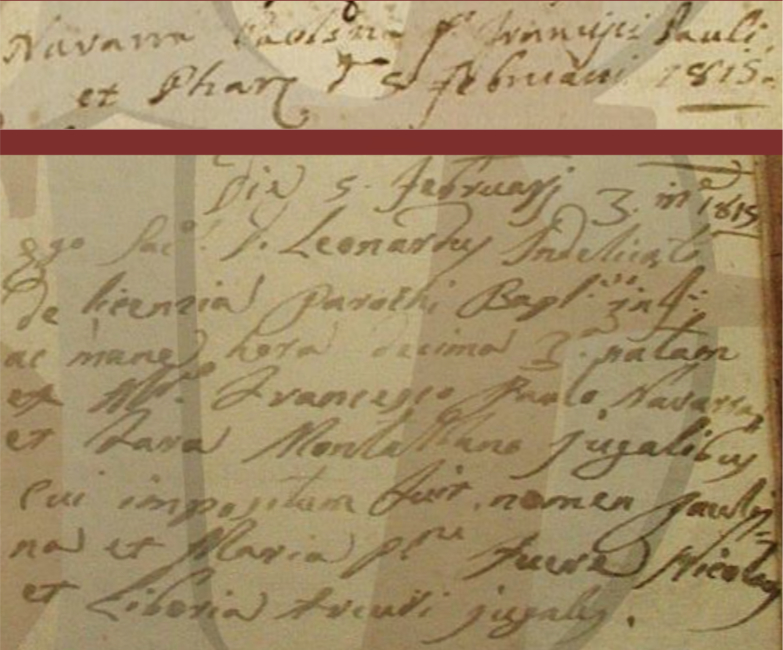 Navarra Paolina f. Francisci Pauli
et Phare 5 februarii 1815
Die 5. februarii 3. in.e 1815
Ego Sac. D. Leonardus Indelicato
de licenzia Parochi Bapt. inf.
ac mane hora decima 3.a natam
ex M.ro Francesco Paolo Navarra
et Fara Montalbano jugalibus
cui impositum fuit nomen Pauli=
na et Maria p.ni fuere Nicolaus
et Liboria Arcuri jugales.